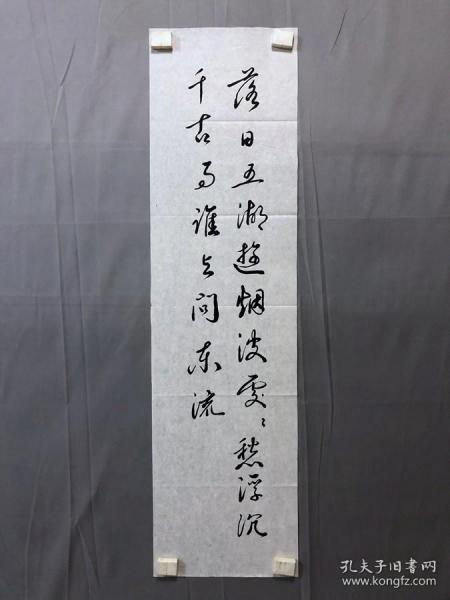 落日五湖遊烟波處〻愁浮沉
千古事誰與問東流
孔夫子旧书网
www.kongfz.com